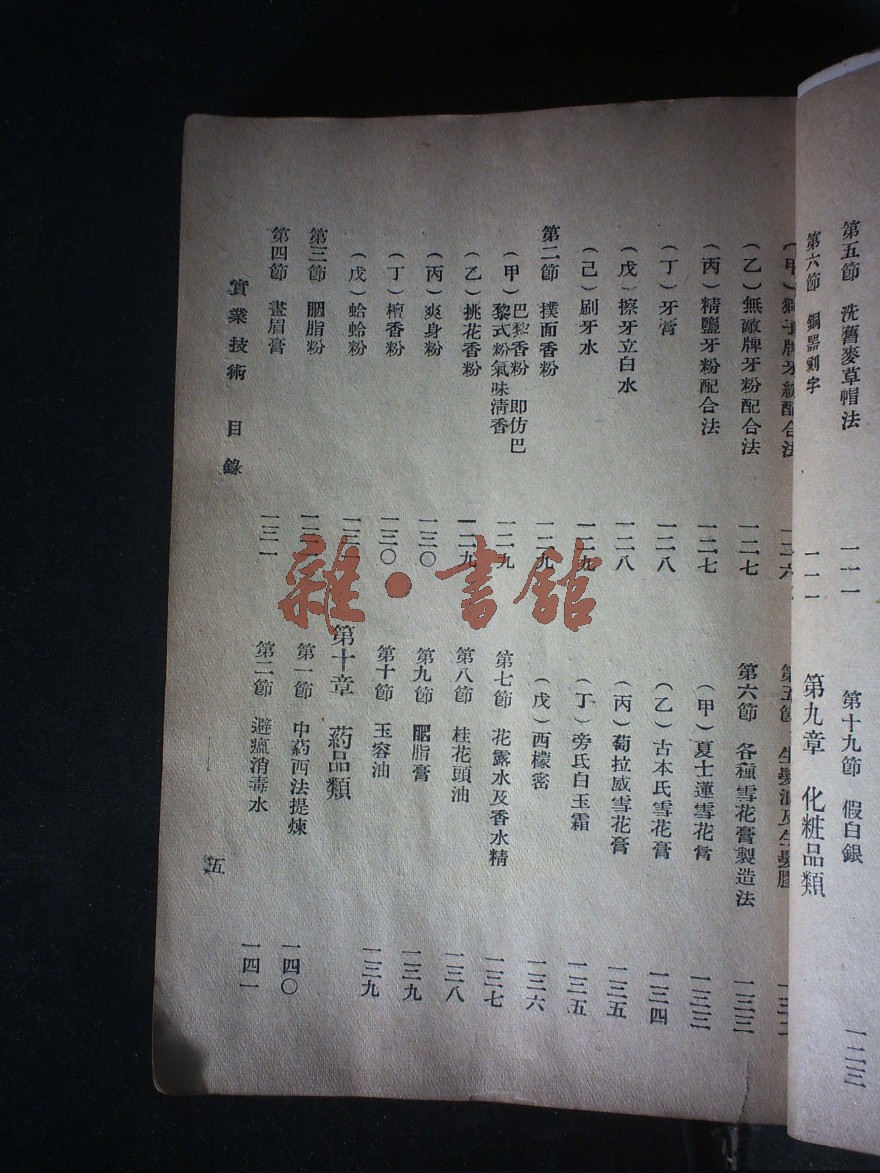 第五節 洗舊麥草帽法 一一一
第六節 銅器刻字 一一一
第十九節 假白銀 一二三
第九章 化粧品類
(甲)獅子牌牙粉配合法 一二六
(乙)無敵牌牙粉配合法 一二七
(丙)精鹽牙粉配合法 一二七
(丁)牙膏 一二八
(戊)擦牙立白水 一二八
(己)刷牙水 一二九
第二節 撲面香粉 一二九
(甲)巴黎香粉 即仿巴黎式粉氣味清香 一二九
(乙)挑花香粉 一二九
(丙)爽身粉 一三〇
(丁)檀香粉 一三〇
(戊)蛤蛤粉
第三節 胭脂粉
第四節 畫眉膏 一三一
第五節 生髮油及生髮膠
第六節 各種雪花膏製造法 一三三
(甲)夏士蓮雪花膏 一三三
(乙)古本氏雪花膏 一三四
(丙)萄拉威雪花膏 一三五
(丁)旁氏白玉霜 一三五
(戊)西檬密 一三六
第七節 花露水及香水精 一三七
第八節 桂花頭油 一三八
第九節 肥脂膏 一三九
第十節 玉容油 一三九
第十章 药品類
第一節 中药西法提煉 一四〇
第二節 避瘟消毒水 一四一
實業技術 目錄
五
雜·書館